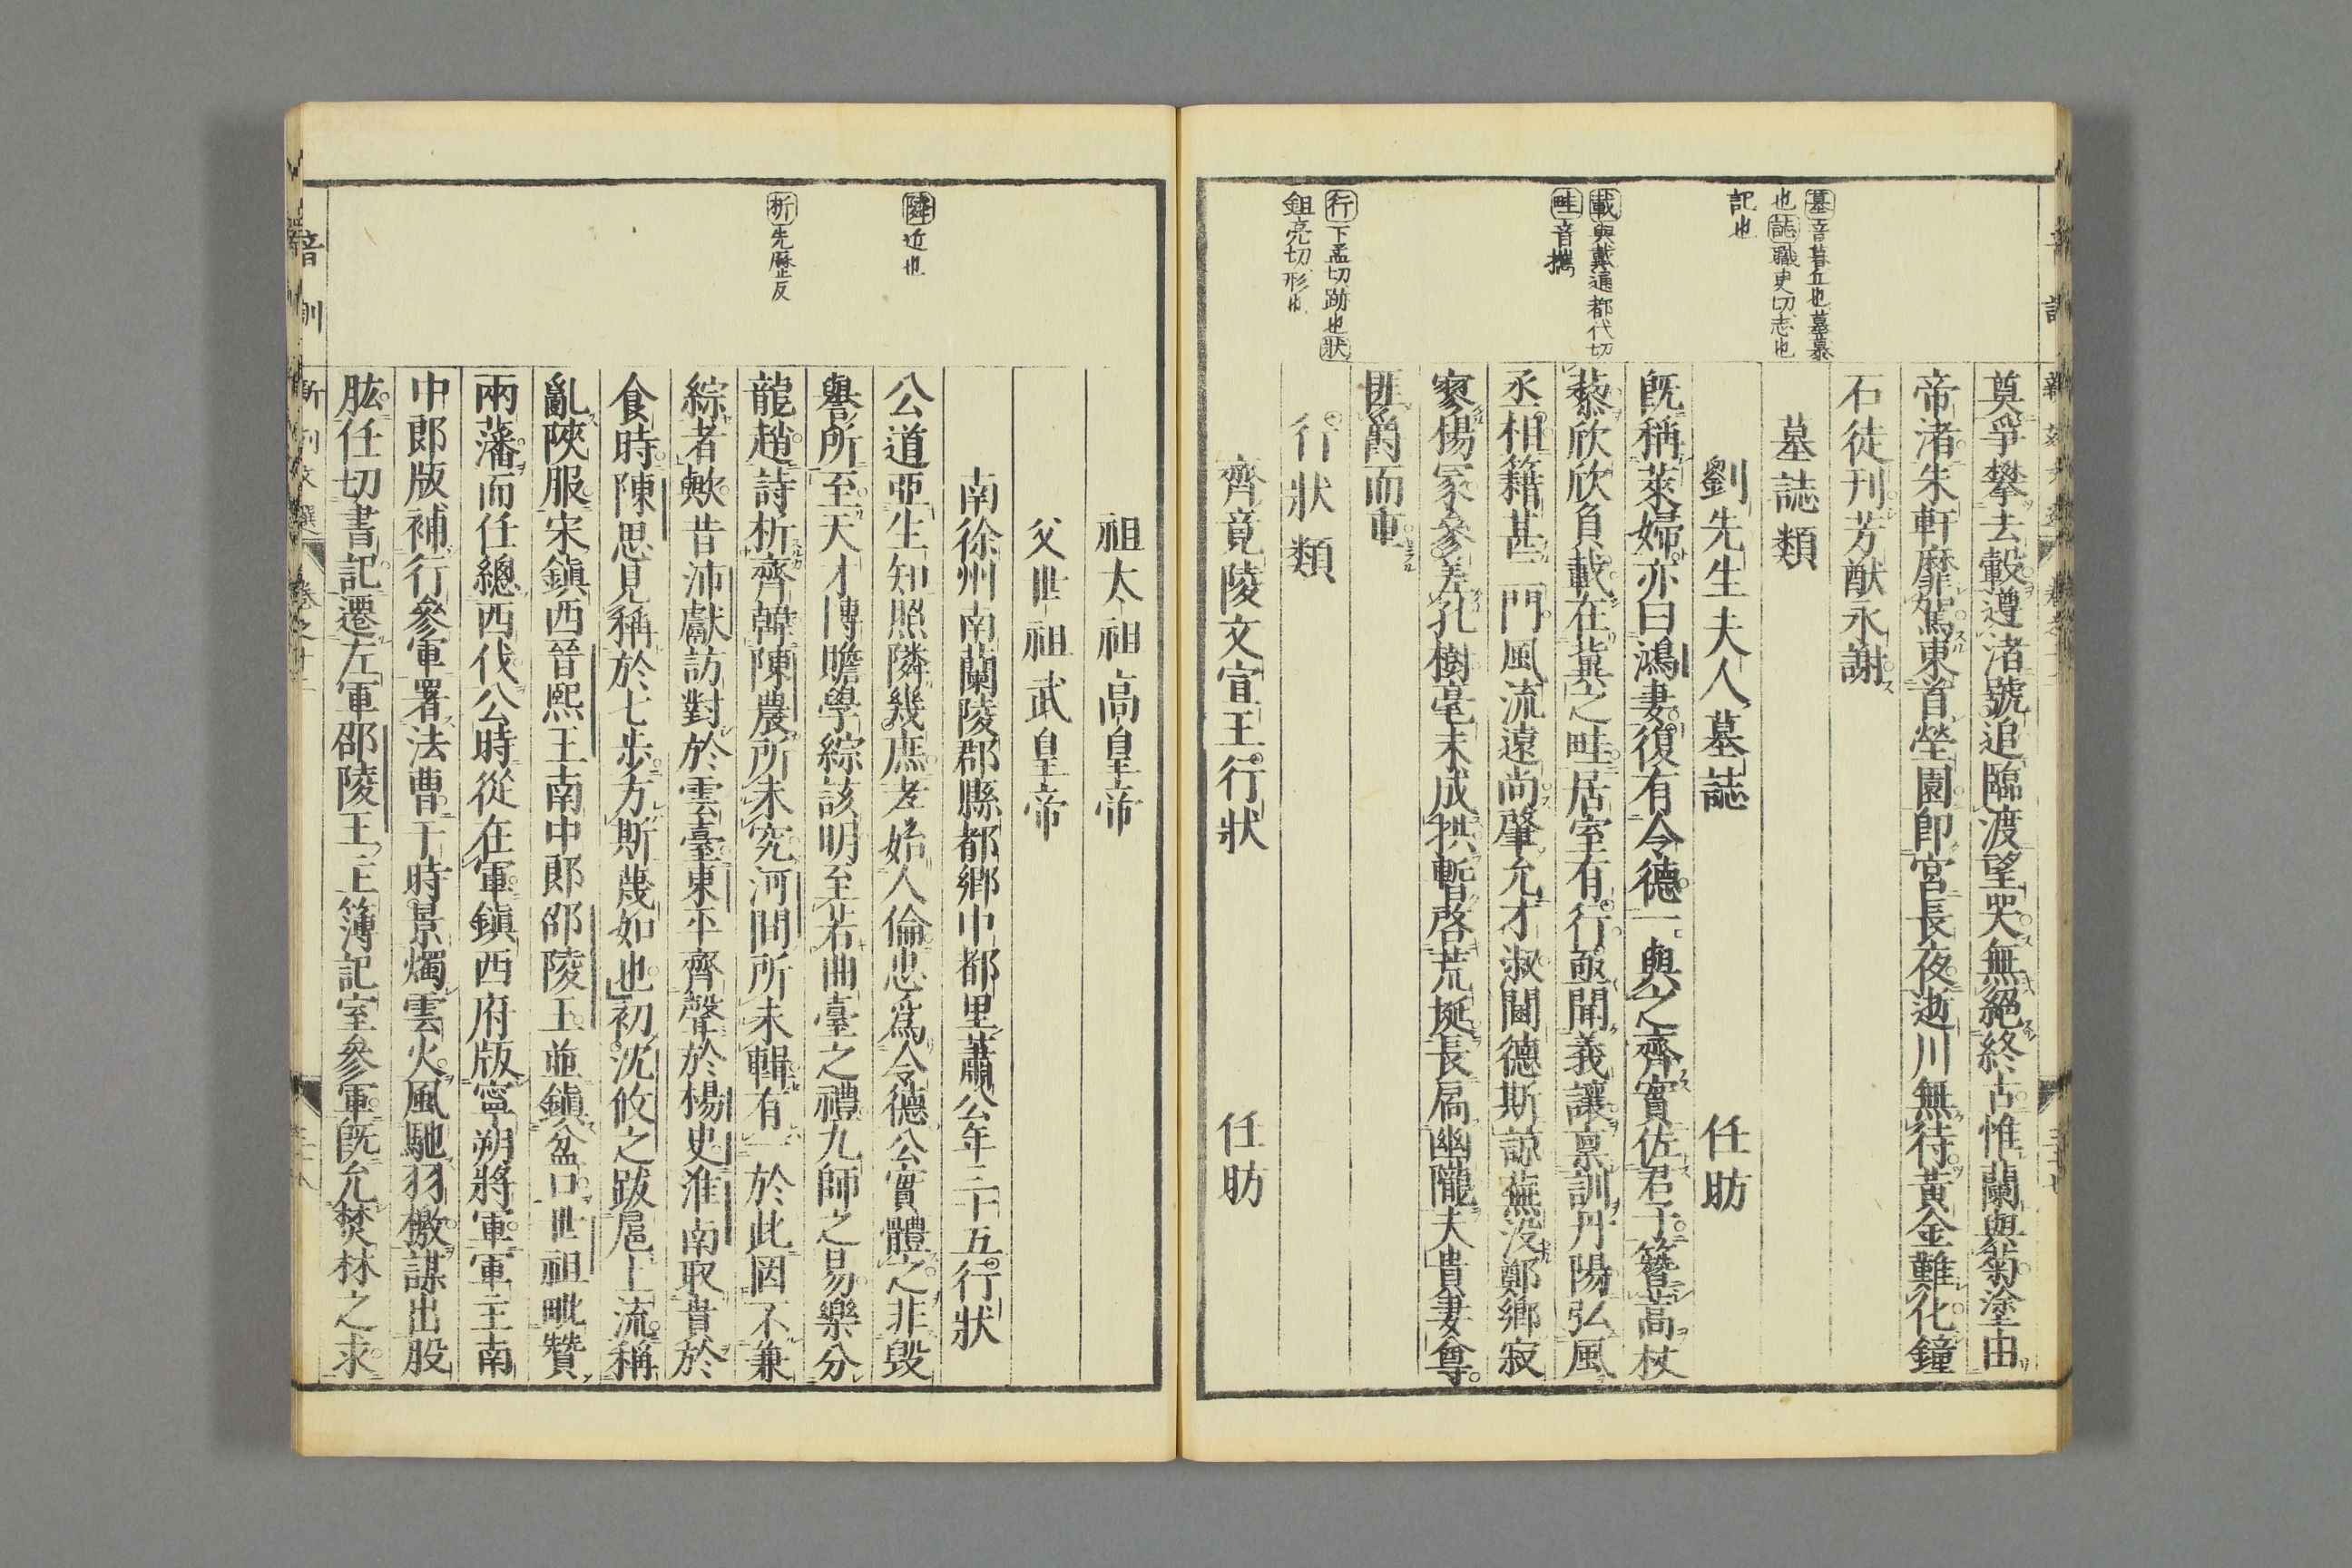 墓音暮丘也墓慕
也誌職吏切志也
記也
載與戴通都代切
畦音攜
行下孟切跡也狀
鉏亮切形也
奠爭攀去轂遵渚號追臨渡望哭無絕終古惟蘭與菊塗由
帝渚朱軒靡駕東首塋園即宮長夜逝川無待黃金難化鐘
石徒刊芳猷永謝
墓誌類
劉先生夫人墓誌 任昉
既稱萊婦亦曰鴻妻復有令德一與之齊實佐君子簪蒿杖
藜欣欣負載在冀之畦居室有行亟聞義讓稟訓丹陽弘風
丞相籍甚二門風流遠尚肇允才淑閫德斯諒蕪沒鄭鄉寂
寥楊冢參差孔樹毫末成拱暫啓荒埏長扃幽隴夫貴妻尊
匪爵而重
行狀類
齊竟陵文宣王行狀 任昉
隣近也
析先歷反
祖太祖高皇帝
父世祖武皇帝
南徐州南蘭陵郡縣都鄉中都里蕭公年三十五行狀
公道亞生知照隣幾庶孝始人倫忠爲令德公實體之非毀
譽所至天才博贍學綜該明至若曲臺之禮九師之易樂分
龍趙詩析齊韓陳農所未究河間所未輯有一於此罔不兼
綜者歟昔沛獻訪對於雲臺東平齊聲於楊史淮南取貴於
食時陳思見稱於七步方斯蔑如也初沈攸之跋扈上流稱
亂陝服宋鎮西晉熙王南中郎邵陵王並鎮盆口世祖毗贊
兩藩而任總西伐公時從在軍鎮西府版寧朔將軍軍主南
中郎版補行參軍署法曹于時景燭雲火風馳羽檄謀出股
肱任切書記遷左軍邵陵王主簿記室參軍既允焚林之求
音訓 新刊文選 卷之十二